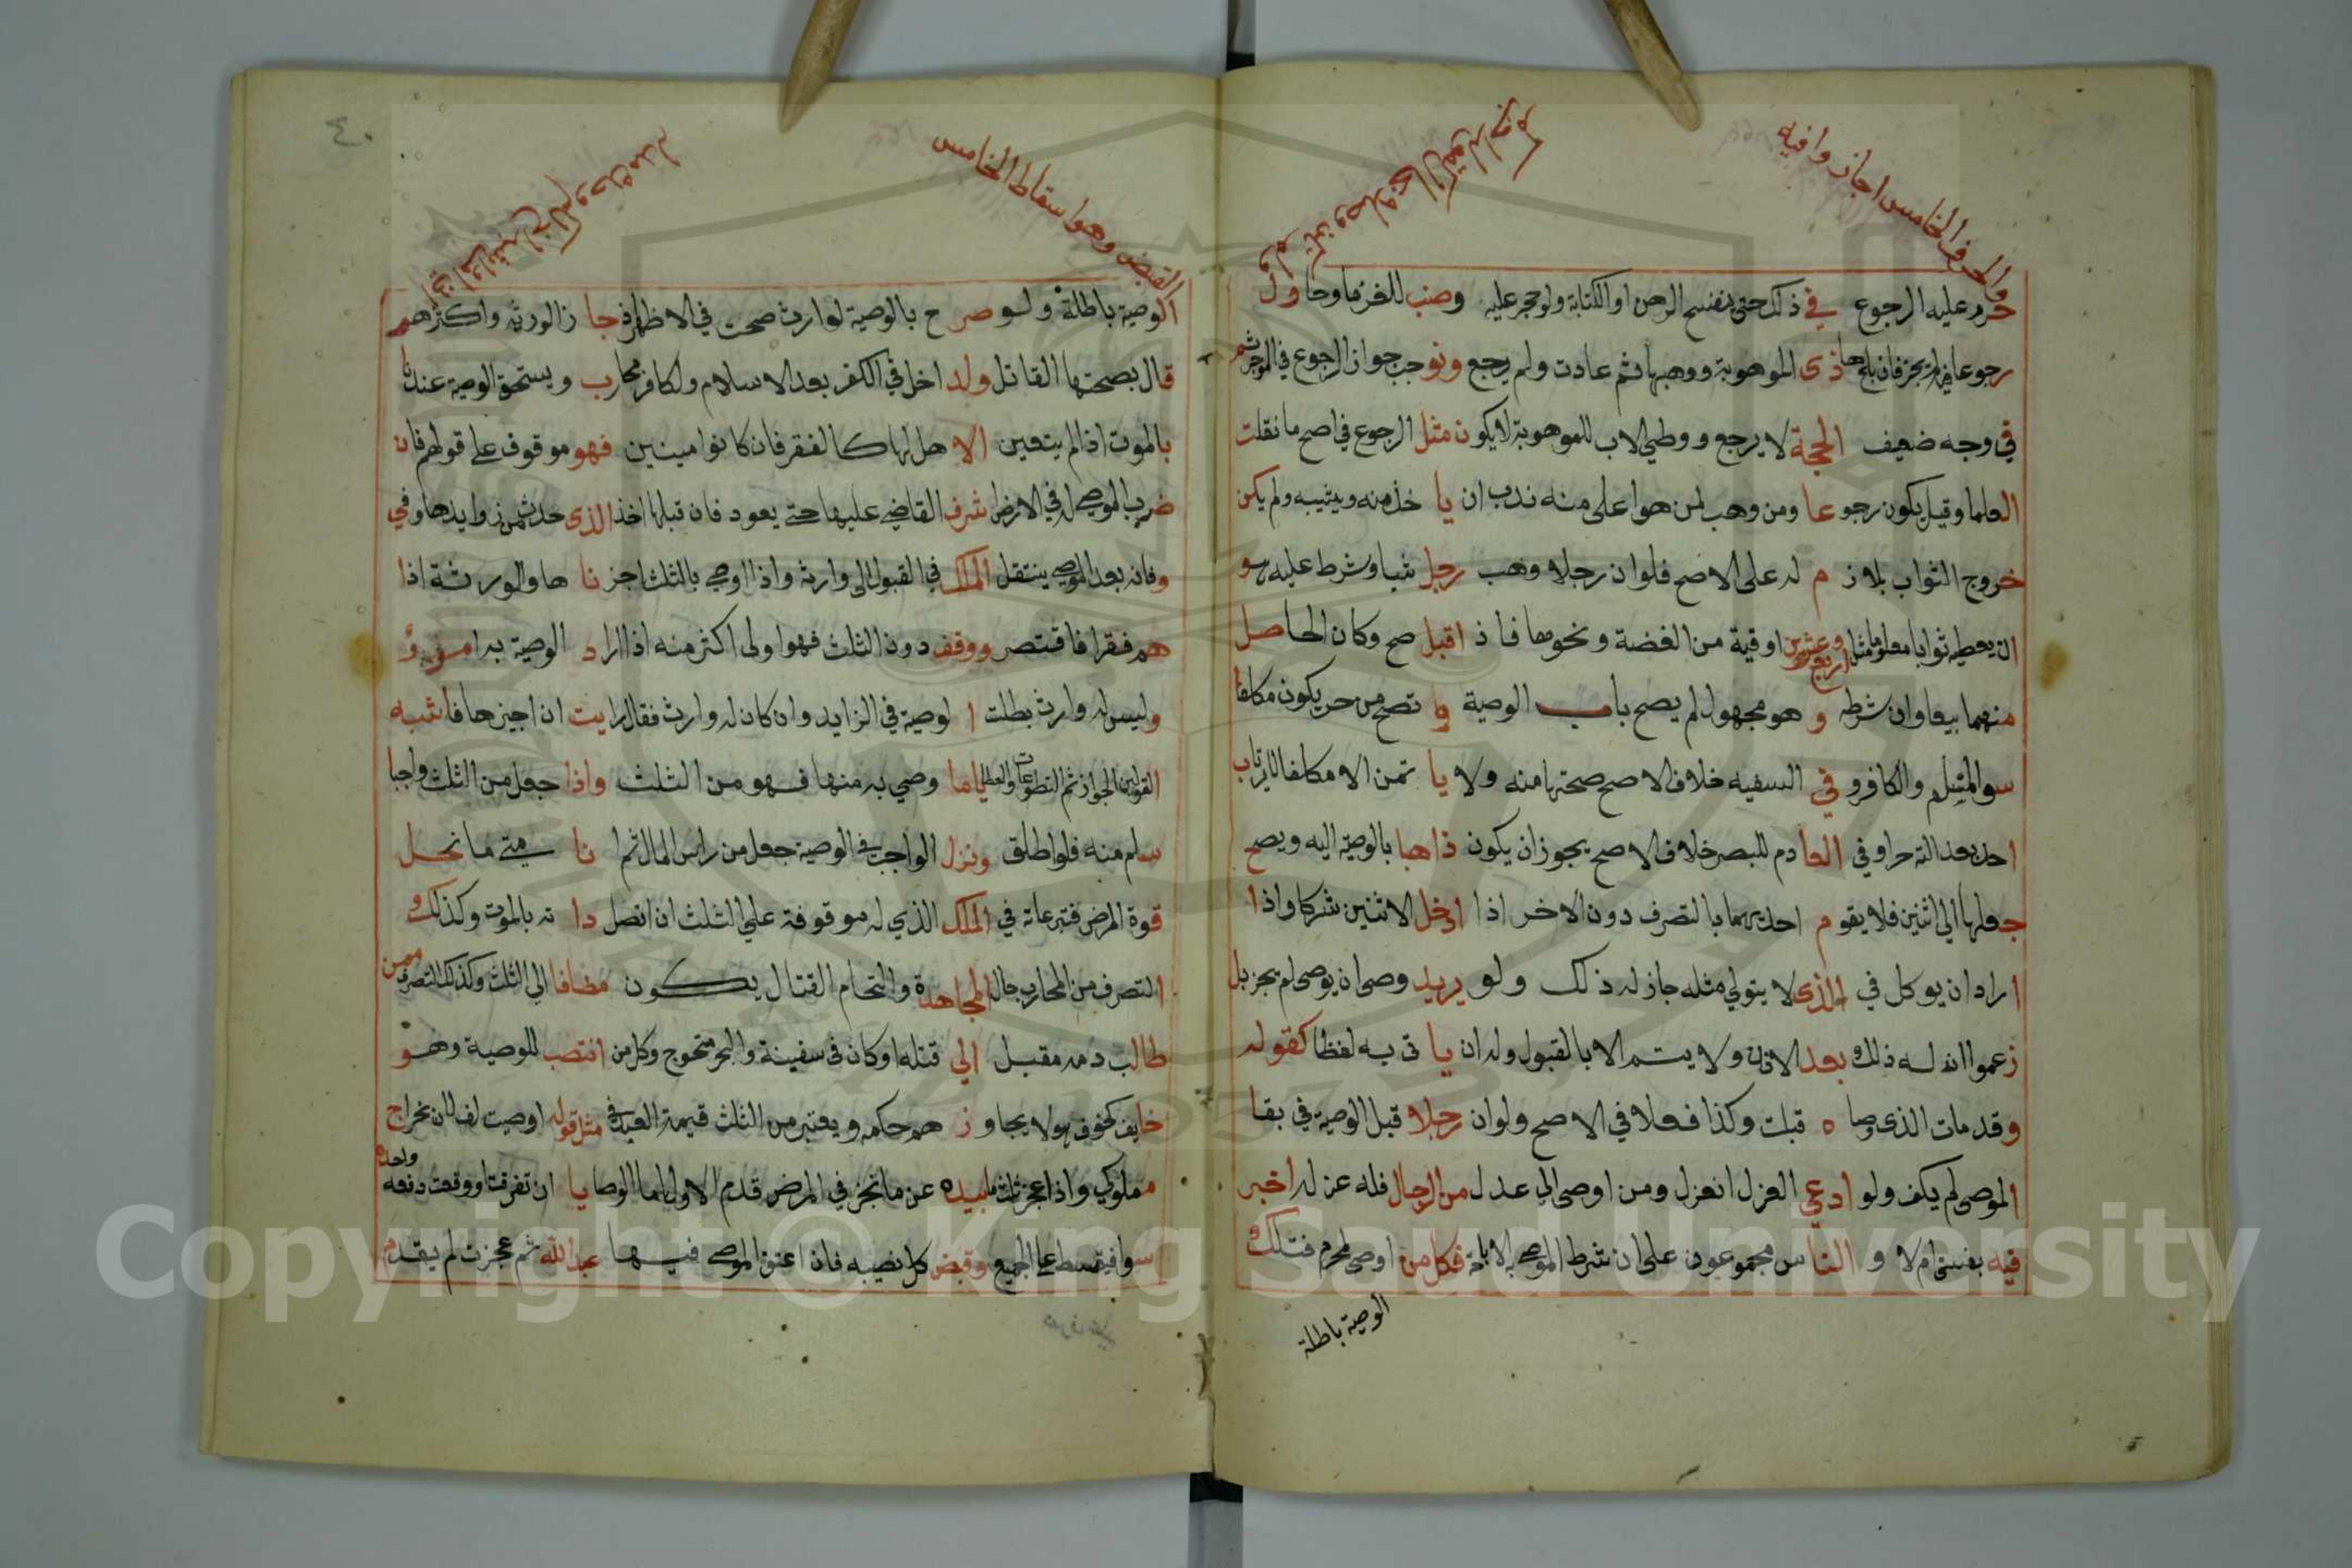 والحرف الخامس اجاز وافيه
حرم عليه الرجوع في ذلك حتى ينفسخ الرهن او الكتابة ولو حجر عليه وصنب للغرما وحاول
رجوعا فيها لم يجز فان بلجها ذى الموهوبة ووهبها ثم عادت ولم يرجع ونوجب جواز الرجوع في المؤجر ثم
في وجه ضعيف الحجة لا يرجع ووطي الاب للموهوبة لا يكون مثل الرجوع في اصح ما نقلت
العلما وقيل يكون رجوعا ومن وهب لمن هو اعلى منه ندب ان يا خذ منه ويثيبه ولم يكن
خروج الثواب بلازم له على الاصح فلو ان رجلا وهب رجل شيا وشرط عليه هو
ان يعطيه ثوابا معلوما مثل اربع وعشرين اوقية من الفضة ونحوها فا ذ اقبل صح وكان الحاصل
منهما بيعا وان شرطه و هو مجهول لم يصح باب الوصية و تصح من حر يكون مكلفا
سوا المسلم والكافر و في السفيه خلاف الاصح صحتها منه ولا يا تمن الا مكلفا لا يرتاب
احد بعدالته حرا وفي العادم للبصر خلاف الاصح يجوز ان يكون ذاهبا بالوصية اليه ويصح
جعلها الي اثنين فلا يقوم احديهما بالتصرف دون الاخر اذا ادخل الاثنين شركا واذا
اراد ان يوكل في الذى لا يتولي مثله جاز له ذلك ولو يريد وصى ان يوصى لم يجز بل
زعموا انه له ذلك بعد الاذن ولا يتم الا بالقبول وله ان يا تى به لفظا كقوله
وقد مات الذى وصا ه قبلت وكذا فعلا في الاصح ولو ان رجلا قبل الوصية في بقا
الموصى لم يكف ولو ادعي العزل انعزل ومن اوصى الي عدل من الرجال فله عزله اخبر
فيه بفسق ام لا و الناس مجموعون على ان شرط الموصى به الاباحة فكل من اوصى لمحرم فتلك
الوصية باطلة
القبض وهو اسقاط الخامس
الوصية باطلة ولو صر ح بالوصية لوارث صحت في الاظهر فجا ز الورثه واكثرهم
قال بصحتها القاتل ولد اخل في الكفر بعد الاسلام ولكافر محارب ويستحق الوصية عندنا
بالموت اذا لم يتعين الا هل لها كالفقر فان كانوا معينين فهو موقوف على قولهم فان
ضرب الموصى له في الارض اشرف القاضي عليها حتى يعود فان قبلها اخذ الذى حدث من زوايدها وفي
وفاته بعد الموصي ينتقل الملك في القبول الى وارثه واذا اوصي بالثلث اجز نا ها والورثة اذا
هم فقرا فاقتصر ووقف دون الثلث فهو اولى اكثر منه اذا اراد الوصية به امرؤ
وليس له وارث بطلت ا لوصية في الزايد وان كان له وارث فقال رايت ان اجيزها فاشبه
القولين الجواز ثم التطوعات والعطايا ما وصي به منها فهو من الثلث واذا جعل من الثلث واجبا
سلم منه فلو اطلق ونزل الواجب في الوصية جعل من راس المال ثم ا نا متى ما نحل
قوة المرض فتبرعاته في الملك الذي له موقوفة علي الثلث ان اتصل دا ته بالموت وكذلك
التصرف من المحارب حال المجاهدة والتحام القتال يكون مضافا الي الثلث وكذلك التصرف ممن
طالب دمه مقبل الي قتله او كان في سفينة والبحر متموج وكل من انتصب للوصية وهو
خايف كخوف هولا يجاو ز هم حكمه ويعتبر من الثلث قيمة العبد في مثل قوله اوصيت لفلان بخراج
مملوكي واذا عجز ثلث ما بيده عن ما نجز في المرض قدم الاول اما الوصا يا ان تفرقت او وقعت دفعه واحدة
سوا فيقسط على الجميع وقبض كل نصيبه فان اعتق الموصى فيها عبدالله ثم عجزت لم يقدم
Copyright © King Saud University